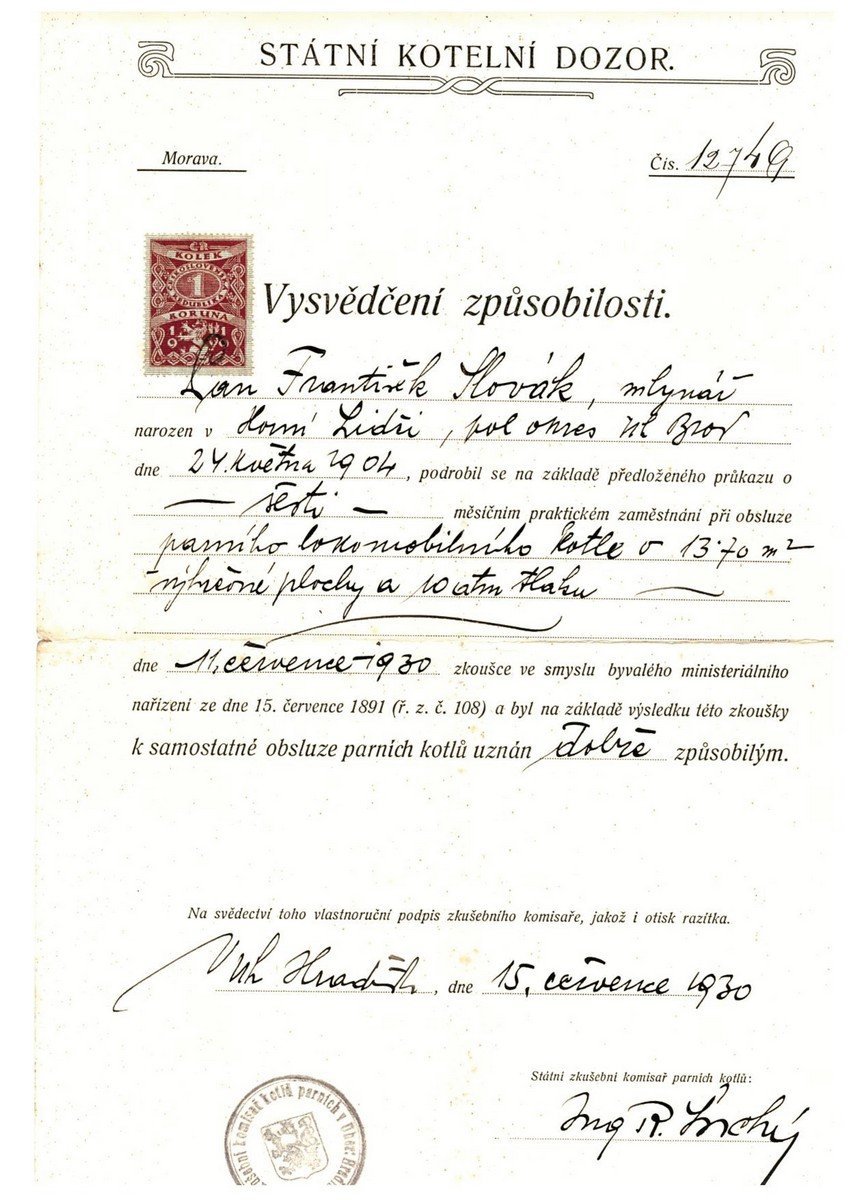 STÁTNÍ KOTELNÍ DOZOR.
Morava.
Čís. 12749
ČR
KOLEK
ČESKOSLOVENSKÁ
1
REPUBLIKA
KORUNA
Vysvědčení způsobilosti.
Pan František Slovák, mlynář
narozen v Horní Lidči, pol okres Uh Brod
dne 24. května 1904, podrobil se na základě předloženého průkazu o
— šesti — měsíčním praktickém zaměstnání při obsluze
parního lokomobilního kotle o 13·70 m²
výhřevné plochy a 10 atm tlaku —
dne 11. července 1930 zkoušce ve smyslu byvalého ministeriálního
nařízení ze dne 15. července 1891 (ř. z. č. 108) a byl na základě výsledku této zkoušky
k samostatné obsluze parních kotlů uznán dobře způsobilým.
Na svědectví toho vlastnoruční podpis zkušebního komisaře, jakož i otisk razítka.
V Uh Hradišti, dne 15. července 1930
Státní zkušební komisař parních kotlů:
Ing R.
zkušební komisař kotlů parních v Uher. Hradi